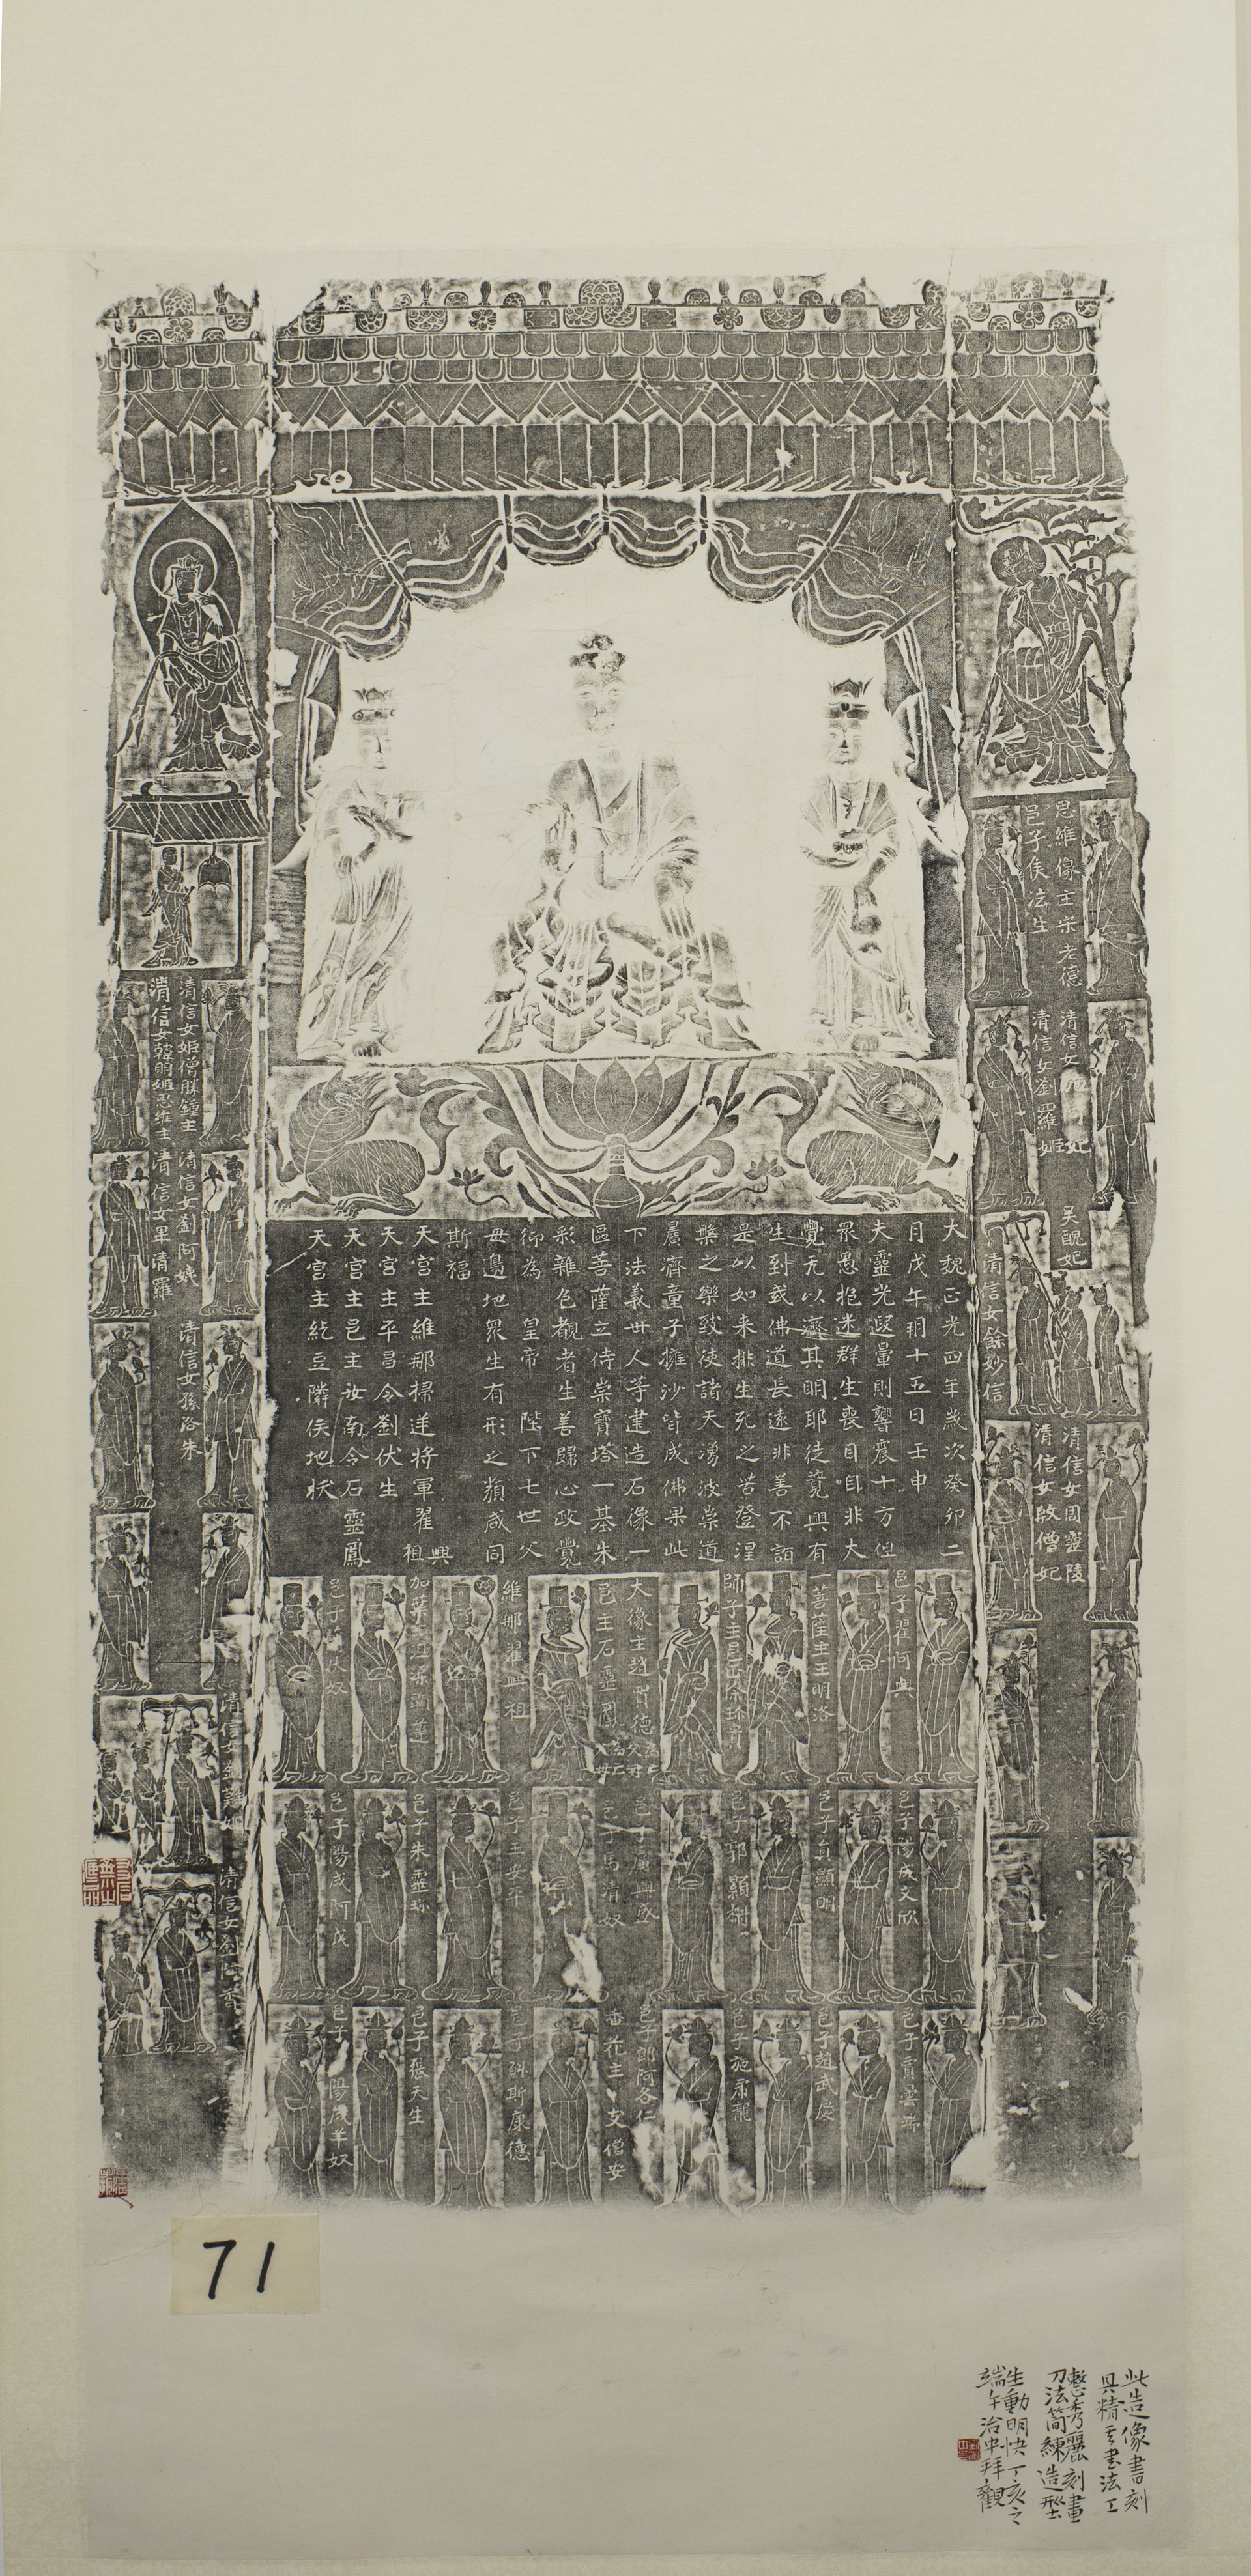 大魏正光四年歲次癸卯二
月戊午朔十五日壬申
夫靈光遐暈則響震十方但
眾愚抱迷群生喪目自非大
覺无以濟其明耶徒競興有
生到或佛道長遠非善不詣
是以如来排生死之苦登涅
槃之樂致使諸天湧波崇道
晨濟童子擁沙皆成佛果此
下法義卅人等建造石像一
區菩薩立侍崇寶塔一基朱
彩雜色覩者生善歸心政覺
仰為 皇帝 陛下七世父
母邊地眾生有形之類咸同
斯福
天宮主維那掃逆將軍翟興祖
天宮主平昌令劉伏生
天宮主邑主汝南令石靈鳳
天宮主紇豆隣俟地伏
思維像主宋老德
邑子侯法生
清信女
妃
清信女劉羅姬
吳醜妃
清信女餘妙信
清信女周靈陵
清信女啟僧妃
清信女姬僧勝鍾主
清信女韓明姬思維主
清信女劉阿姚
清信女畢清羅
清信女孫洛朱
清信女
清信女劉阿
邑子翟阿興
一菩薩主王明洛
師子主邑
大像主趙
德
邑主石靈鳳
維那翟興祖
加葉主
邑子
奴
邑子陽成文欣
邑子
顯明
邑子郭顯
邑子
興盛
邑子馬清奴
邑子王安平
邑子朱靈珍
邑子陽成阿戊
邑子賈雲
邑子趙武慶
邑子施
龍
邑子郎阿各仁
香花主
僧安
邑子斛斯康德
邑子張天生
邑子陽成羊奴
71
此造像書刻
具精妙書法工
整秀麗刻畫
刀法簡練造型
生動明快丁亥之
端午治中拜觀